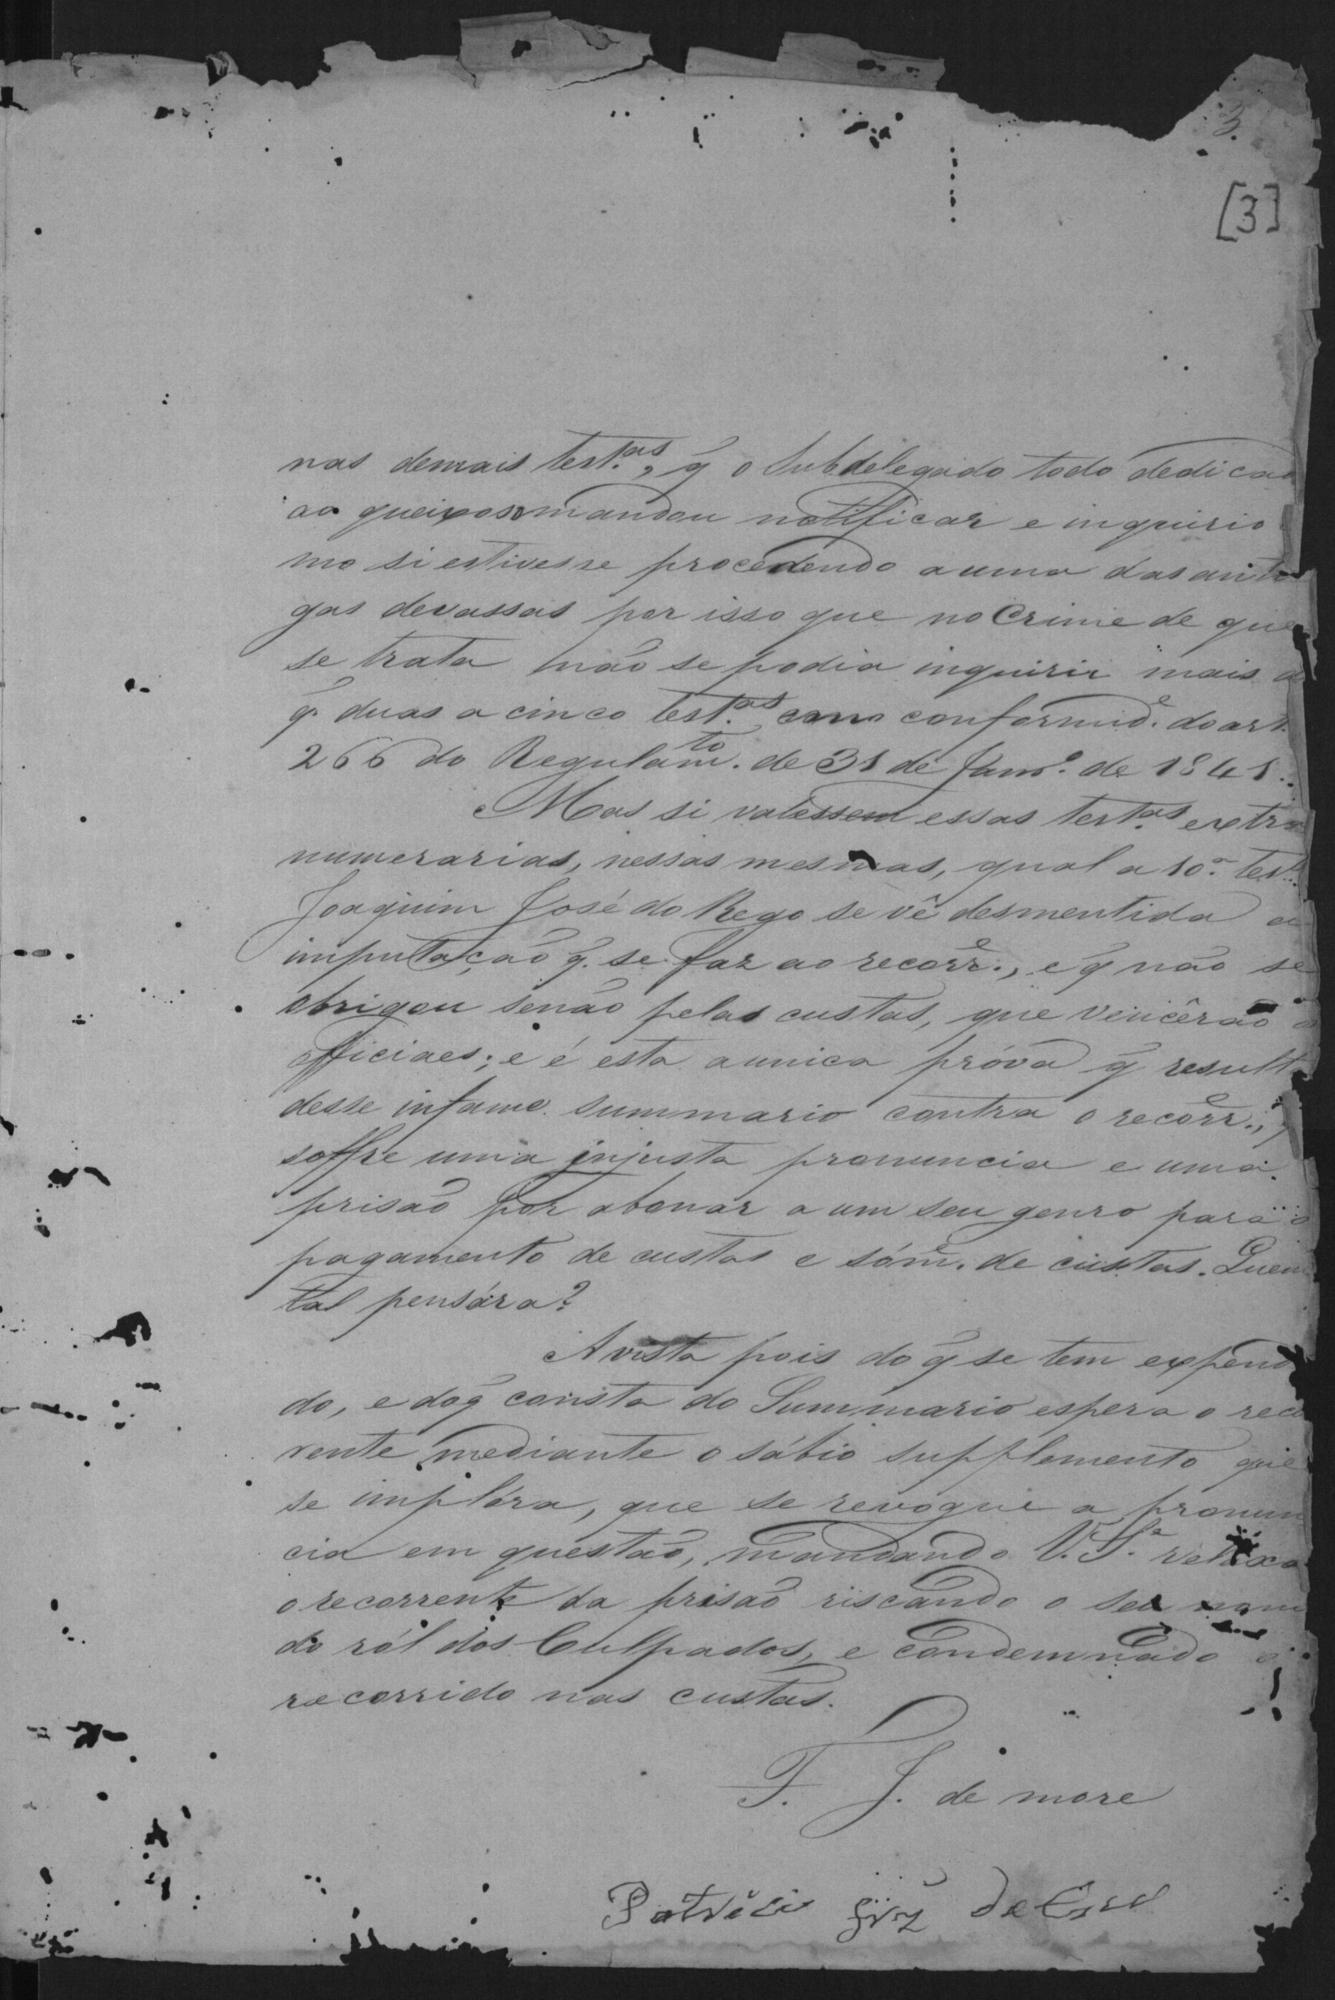 3
[3]
nas demais test.as, q̃ o Subdelegado todo dedica
ao queixoso mandou notificar e inquirio
mo si estivesse procedendo a uma das anti
gas devassas por isso que no Crime de que
se trata não se podia inquirir mais d
q̃ duas a cinco test.as em conformid.e do art.
266 do Regulam.to de 31 de Janr.o de 1841.
Mas si valessem essas test.as extra
numerarias, nessas mesmas, qual a 10.a test.
Joaquim José do Rego se vê desmentida a
imputação q̃ se faz ao recorr.e, e q̃ não se
obrigou senão pelas custas, que vencêrão o
officiaes; e é esta a unica próva q̃ result
desse infame summario contra o recorr.e, q
soffre uma injusta pronuncia e uma
prisão por abonar a um seu genro para o
pagamento de custas e sóm.e de custas. Quem
tal pensára?
A vista pois do q̃ se tem expend
do, e do q̃ consta do Summario espera o reco
rente mediante o sábio supplemento que
se implóra, que se revogue a pronun
cia em questão, mandando V. S.a relaxa
o recorrente da prisão riscando o seu nom
do ról dos Culpados, e condemnado o
recorrido nas custas.
F. J. de more